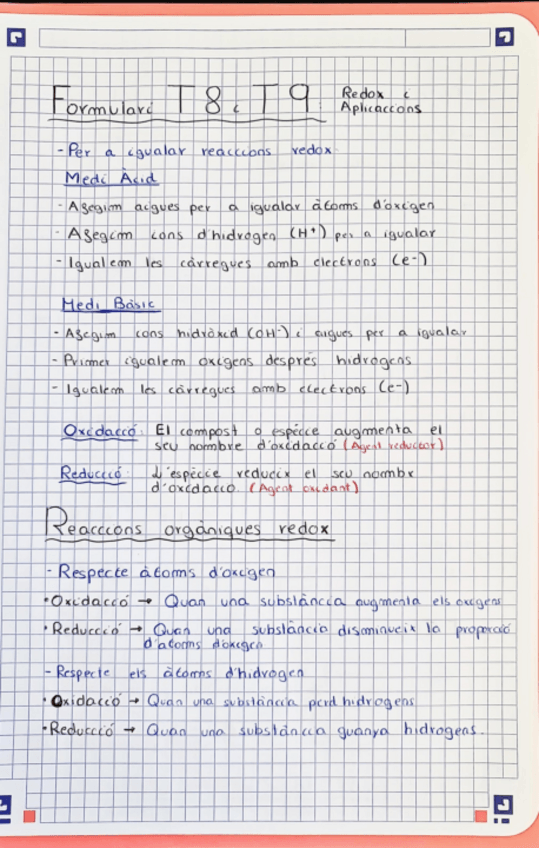 Formulari T8 i T9: Redox i
Aplicaccions
- Per a igualar reaccions redox
Medi Àcid
- Afegim aigues per a igualar àtoms d'oxigen
- Afegim ions d'hidrogen (H⁺) per a igualar
- Igualem les càrregues amb electrons (e-)
Medi Bàsic
- Afegim ions hidròxid (OH-) i aigues per a igualar
- Primer igualem oxigens després hidrogens
- Igualem les càrregues amb electrons (e-)
Oxidacció: El compost o espècie augmenta el
seu nombre d'oxidacció (Agent reductor)
Reducció: L'espècie redueix el seu nombr
d'oxidacio. (Agent oxidant)
Reaccions orgàniques redox
- Respecte àtoms d'oxigen
• Oxidacció → Quan una substància augmenta els oxigens
• Reducció → Quan una substància disminueix la proporció
d'atoms d'oxigen
- Respecte els àtoms d'hidrogen
• Oxidacció → Quan una substància perd hidrogens
• Reducció → Quan una substància guanya hidrogens.